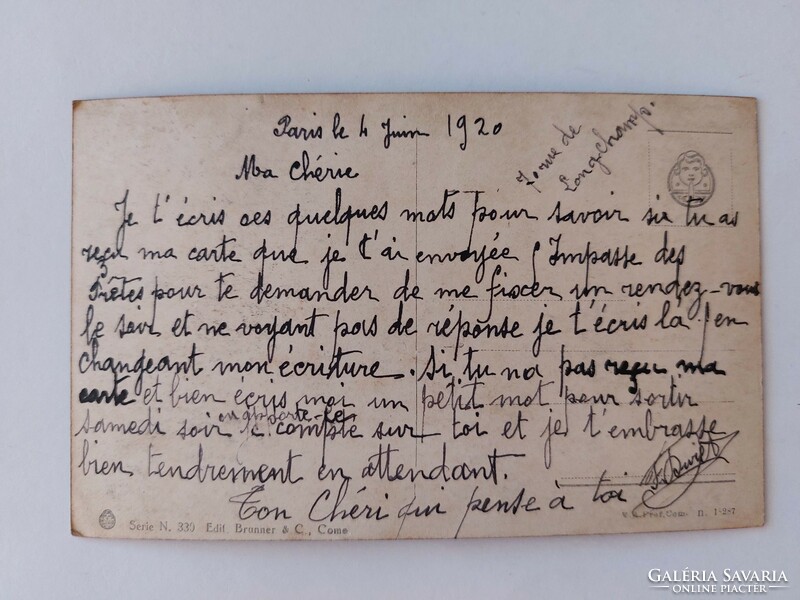 Paris le 4 Juin 1920
rue de
Longchamp.
Ma Chérie
Je t'écris ces quelques mots pour savoir si tu as
reçu ma carte que je t'ai envoyée Impasse des
Prêtes pour te demander de me fixer un rendez-vous
le soir et ne voyant pas de réponse je t'écris là en
changeant mon écriture. Si tu na pas reçu ma
carte et bien écris moi un petit mot pour sortir
samedi soir je compte sur toi et je t'embrasse
bien tendrement en attendant.
Ton Chéri qui pense à toi
Serie N. 339 Edit. Bronner & C., Como
GALÉRIA SAVARIA
ONLINE PIACTÉR